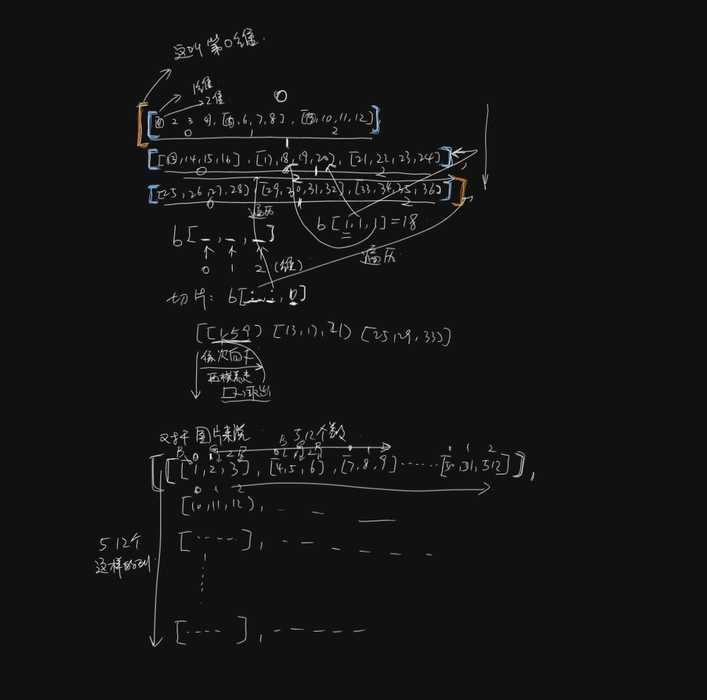 这叫第0维
1维
2维
0
[[[1, 2, 3, 4], [5, 6, 7, 8], [9, 10, 11, 12]],
0 1 2
1
[[13, 14, 15, 16], [17, 18, 19, 20], [21, 22, 23, 24]]
0 1 2
2
[[25, 26, 27, 28] [29, 30, 31, 32], [33, 34, 35, 36]]]
0 1 2
遍历
b[1, 1, 1] = 18
b[_, _, _]
遍历
0 1 2 (维)
切片: b[:, :, 0]
[[1, 5, 9] [13, 17, 21] [25, 29, 33]]
依次向下
取出
对于图片来说 512个数
0 1 2
[[[1, 2, 3], [4, 5, 6], [7, 8, 9] ...... [, 511, 512]],
0 1 2
[10, 11, 12), - - —
512个
这样的列
[.....], - - - - - -
[....], - - - - - -